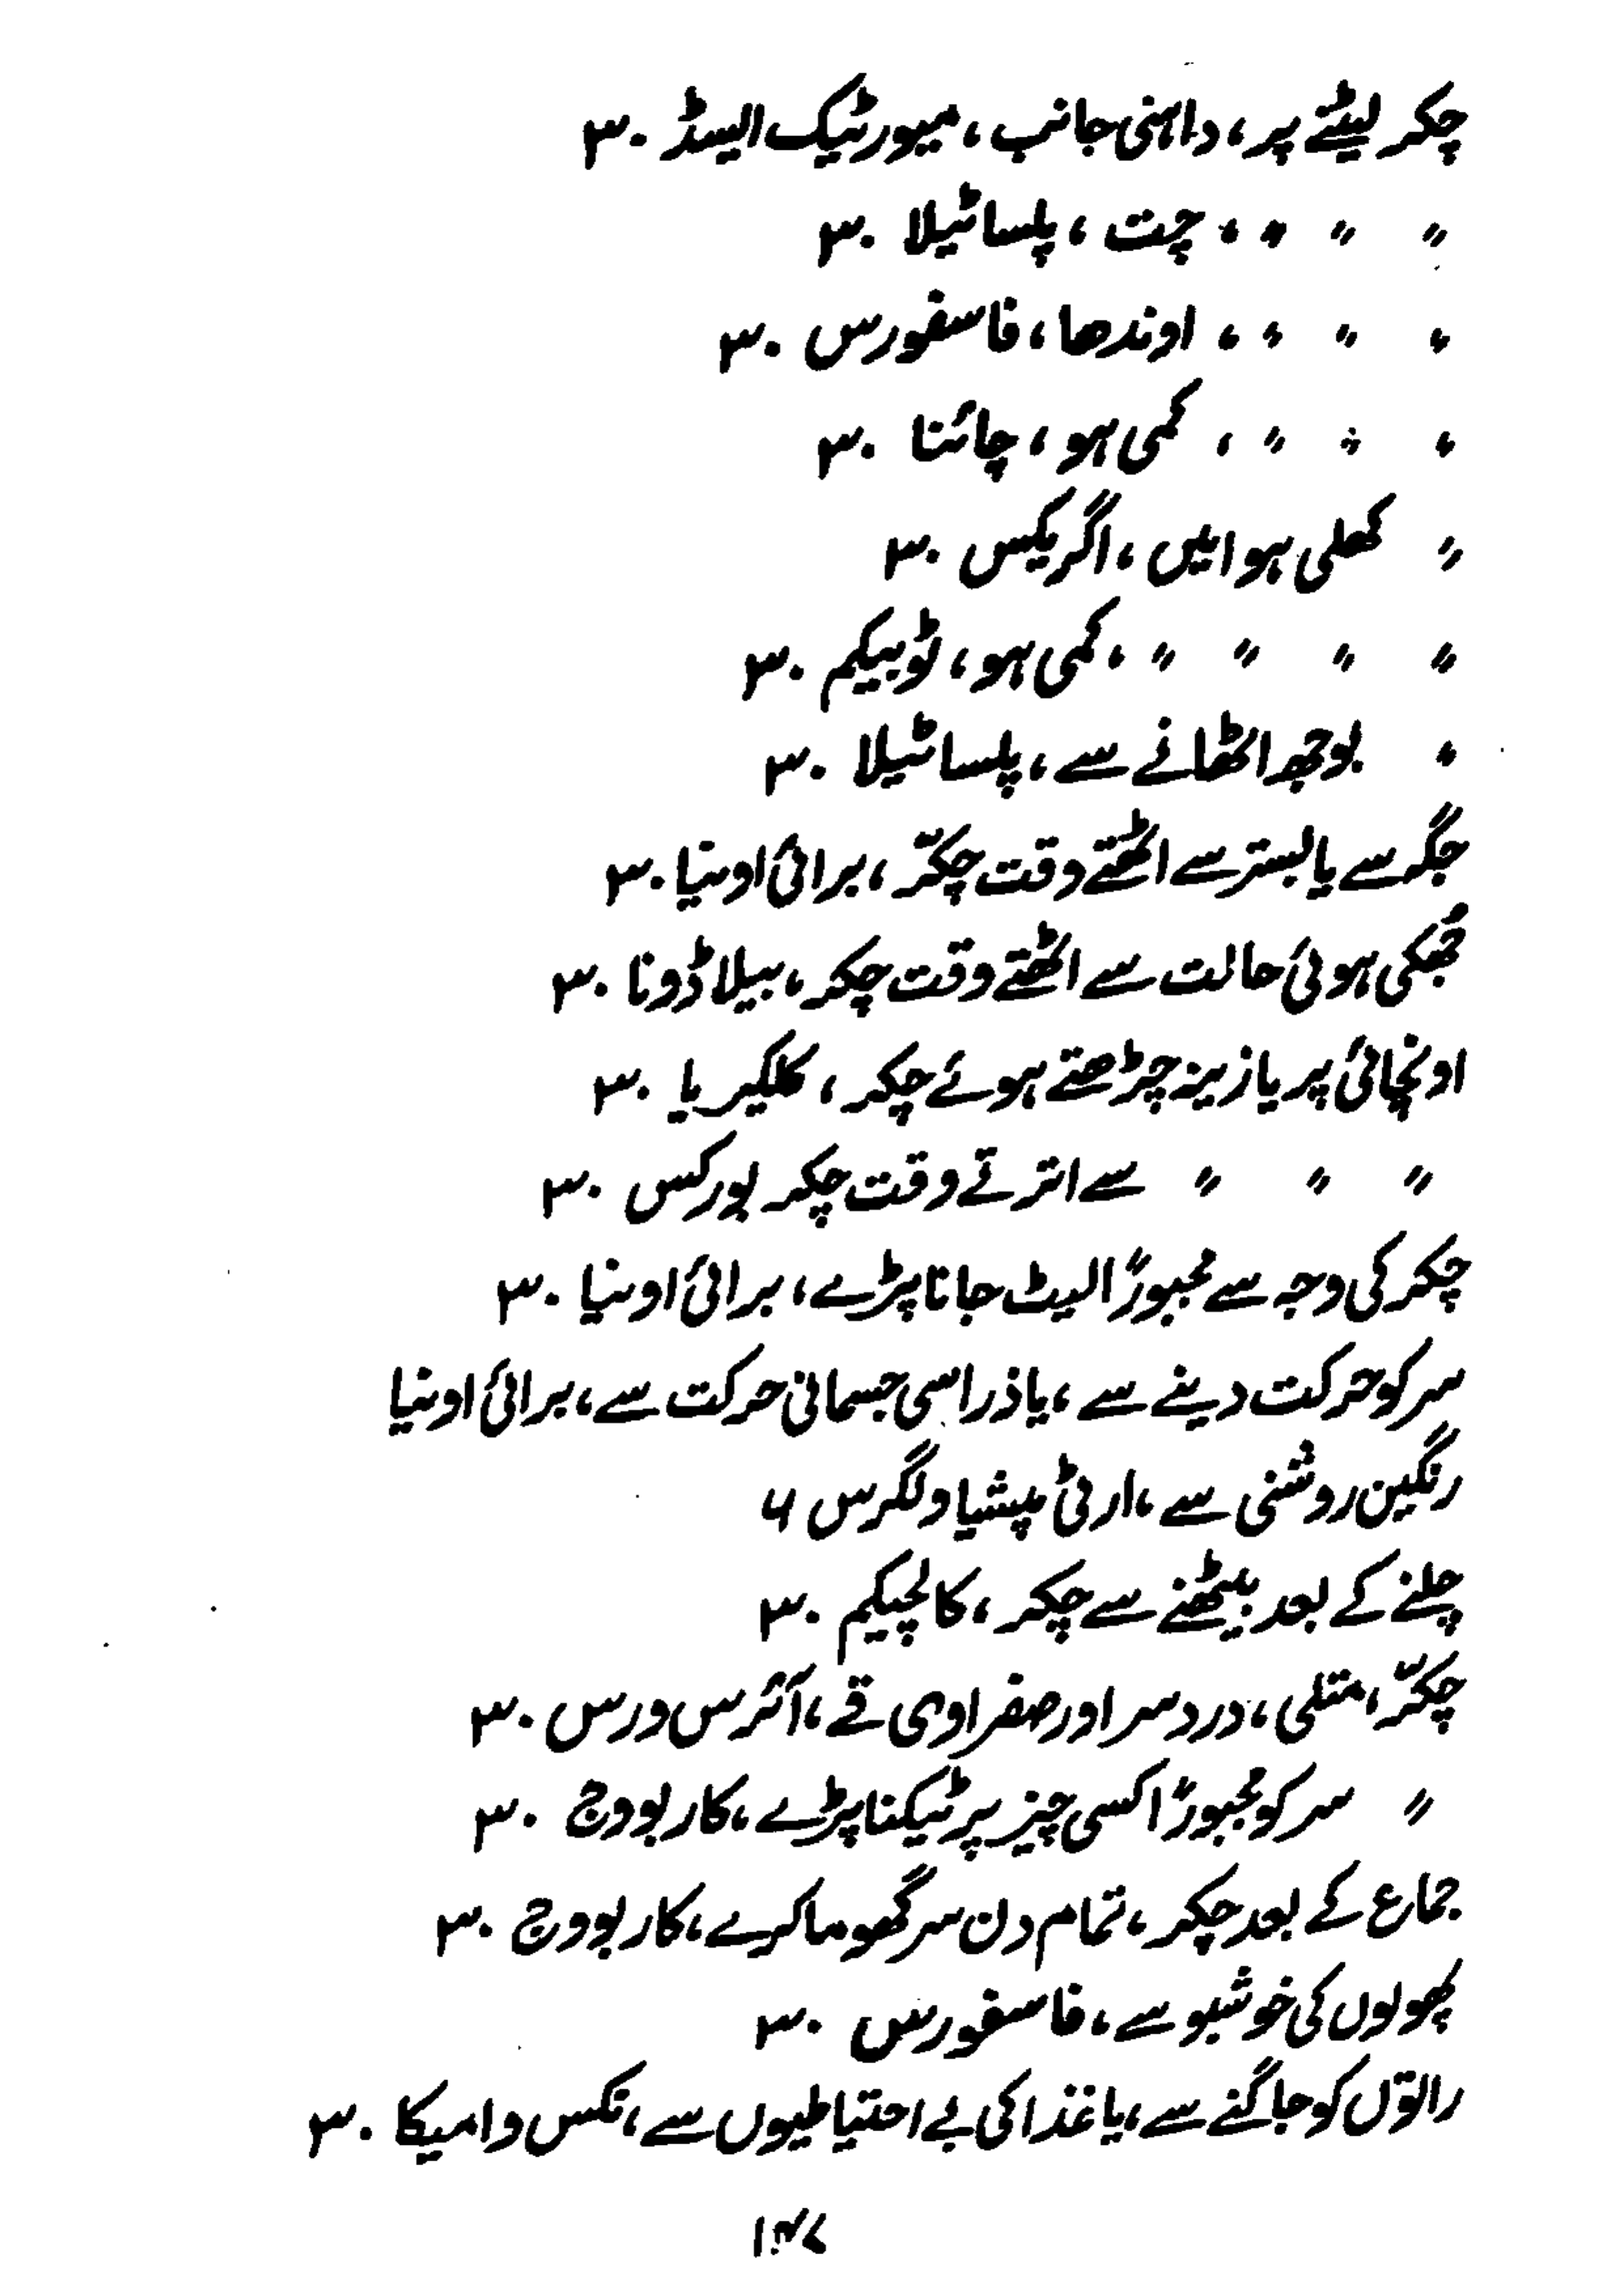 چکر لیٹے پر، داہنی جانب، میورٹیک ایسڈ ۳۰
〃 〃 〃 ، چت، پلساٹیلا ۳۰
〃 〃 〃 ، اوندھا، فاسفورس ۳۰
〃 〃 〃 ، کمی ہو، چائنا ۳۰
〃 کھلی ہوا میں، اگریکس ۳۰
〃 〃 〃 〃 ، کمی ہو، ٹوبیکم ۳۰
〃 بوجھ اٹھانے سے، پلساٹیلا ۳۰
جگر سے یا بستر سے اٹھتے وقت چکّر، برائی اونیا ۳۰
جُھکی ہوئی حالت سے اٹھتے وقت چکر، بیلاڈونا ۳۰
اونچائی پر یا زینہ چڑھتے ہوئے چکر، کلکیریا ۳۰
〃 〃 〃 سے اترتے وقت چکر بورکس ۳۰
چکر کی وجہ سے مجبوراً لیٹ جانا پڑے، برائی اونیا ۳۰
سر کو حرکت دینے سے، یا ذرا سی جسمانی حرکت سے، برائی اونیا
رنگین روشنی سے، ارٹی میشیا ولگرس ۶
چلنے کے بعد بیٹھنے سے چکر، کالچیکم ۳۰
چکّر، متلی، درد سر اور صفراوی قے، آئرس ورس ۳۰
〃 سر کو مجبوراً کسی چیز پر ٹیکنا پڑے، کاربو وج ۳۰
جماع کے بعد چکر، تمام دن سر گھوما کرے، کاربو وج ۳۰
پھولوں کی خوشبو سے، فاسفورس ۳۰
راتوں کو جاگنے سے، یا غذا کی بے احتیاطیوں سے، نکس وامیکا ۳۰